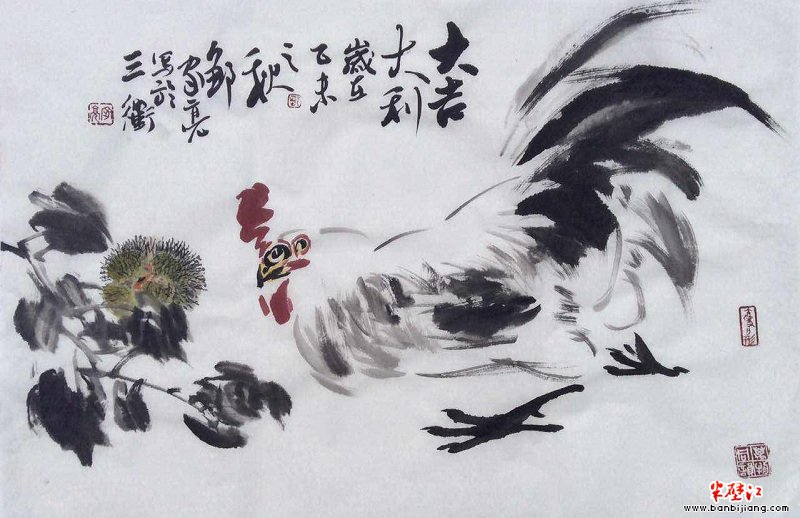 大吉
大利
歲在
乙未
之秋
家亮
写於
三衢
半壁江
www.banbijiang.com